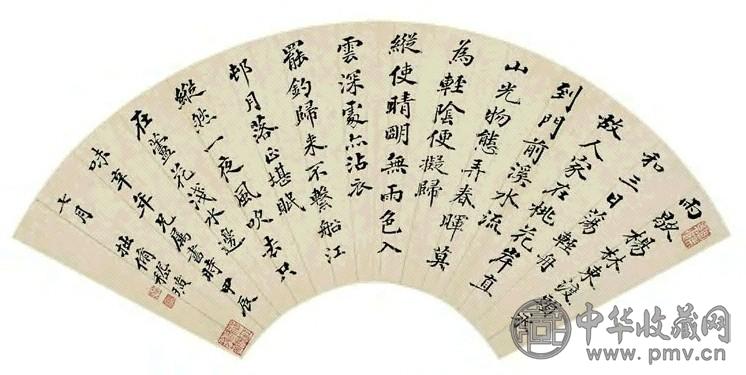 雨歇
楊林東渡頭永
和三日蕩輕舟
故人家在桃花岸直
到門前溪水流
山光物態弄春暉莫
為輕陰便擬歸
縱使晴明無雨色入
雲深處亦沾衣
罷釣歸来不繫船江
邨月落正堪眠
縱然一夜風吹去只
在蘆花淺水邊
味辛年兄屬書時甲辰
七月 拙脩嵇璜
中华收藏网
www.pmv.cn